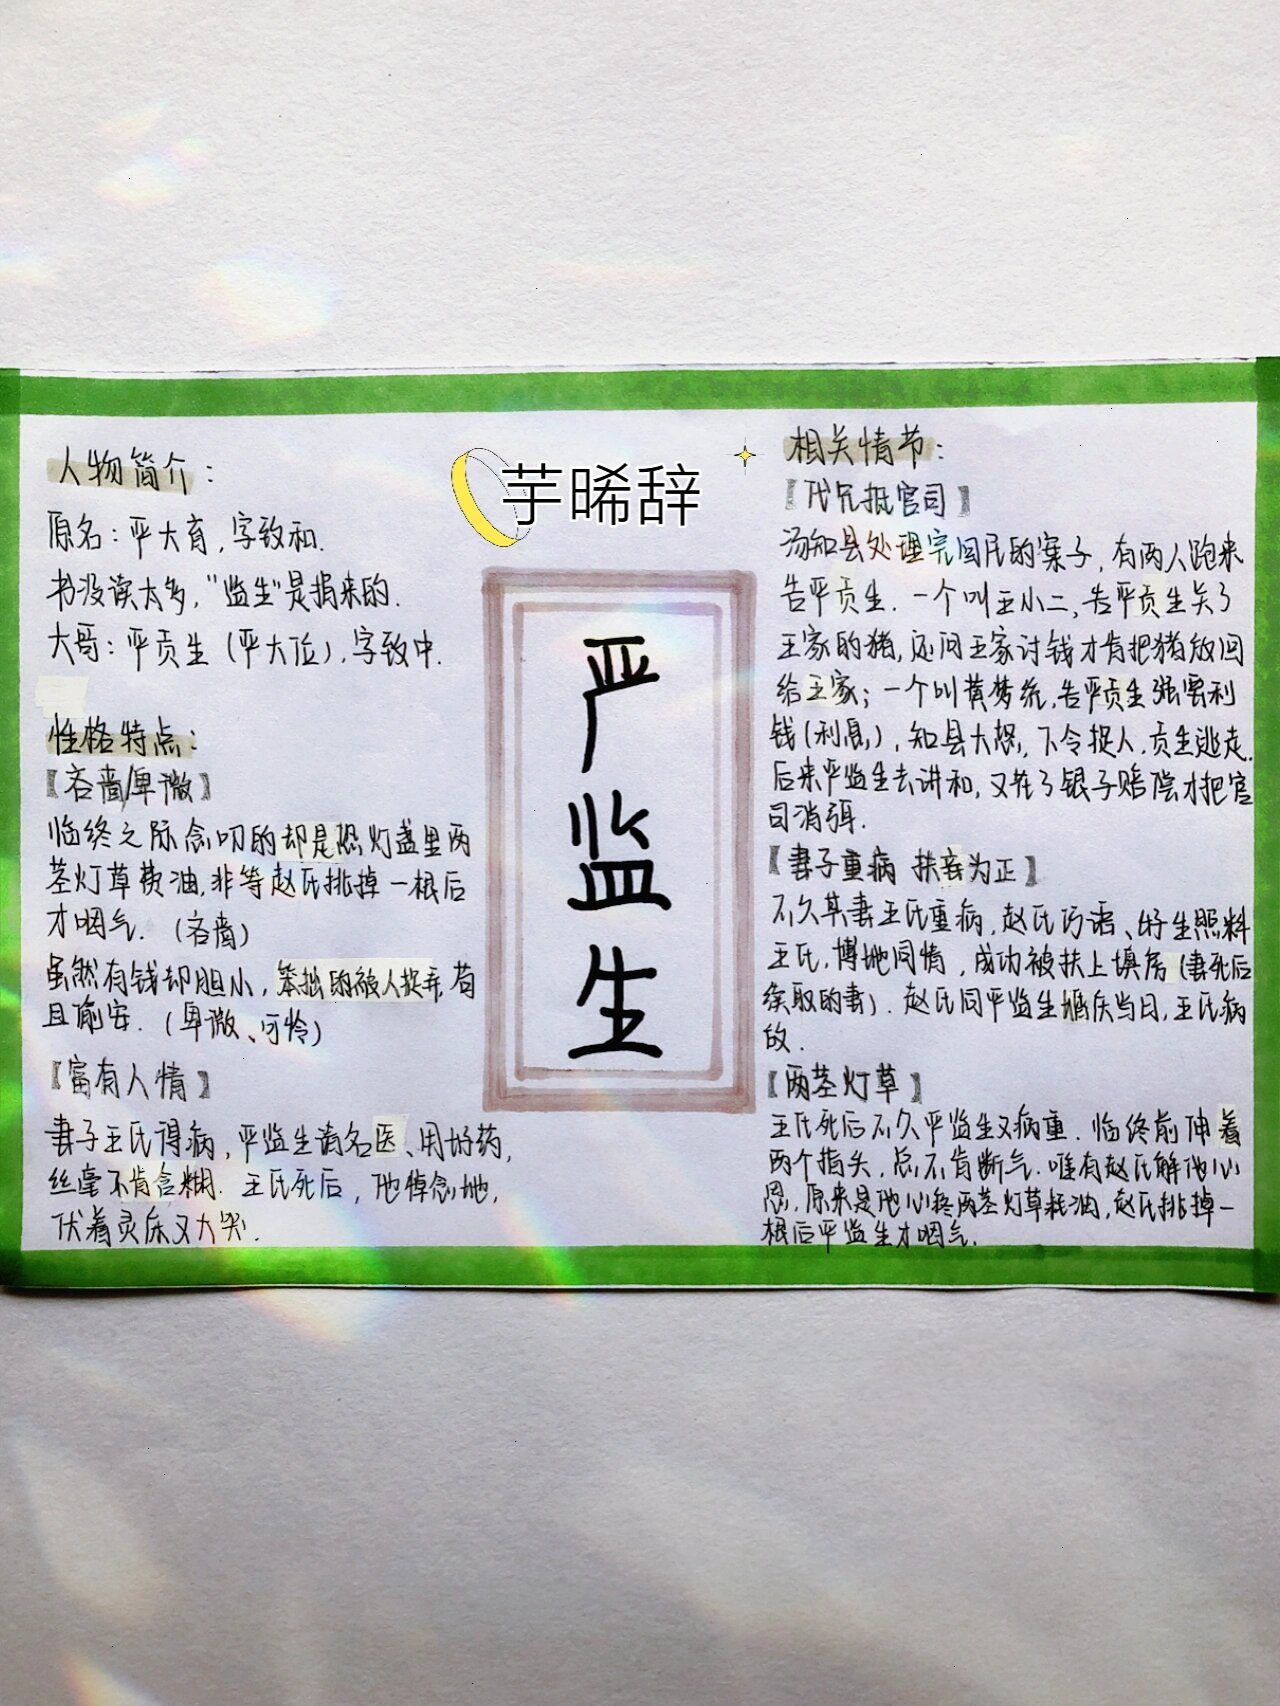 人物简介：
原名：严大育，字致和.
书没读太多，"监生"是捐来的.
大哥：严贡生（严大位），字致中.
性格特点：
【吝啬/卑微】
临终之际念叨的却是恐灯盏里两
茎灯草费油，非等赵氏挑掉一根后
才咽气.（吝啬）
虽然有钱却胆小，笨拙的被人捉弄，苟
且偷安.（卑微、可怜）
【富有人情】
妻子王氏得病，严监生请名医、用好药，
丝毫不肯含糊. 王氏死后，他悼念她，
伏着灵床又大哭.
芋晞辞
严监生
相关情节：
【代兄抵官司】
汤知县处理完回民的案子，有两人跑来
告严贡生. 一个叫王小二，告严贡生关了
王家的猪，还问王家讨钱才肯把猪放回
给王家；一个叫黄梦统，告严贡生强要利
钱（利息），知县大怒，下令捉人，贡生逃走.
后来严监生去讲和，又花了银子赔偿才把官
司消弭.
【妻子重病 扶妾为正】
不久其妻王氏重病，赵氏巧语、好生照料
王氏，博她同情，成功被扶上填房（妻死后
续取的妻）. 赵氏同严监生婚庆当日，王氏病
故.
【两茎灯草】
王氏死后不久严监生又病重. 临终前伸着
两个指头，总不肯断气. 唯有赵氏解他心
思，原来是他心疼两茎灯草耗油，赵氏挑掉一
根后严监生才咽气.